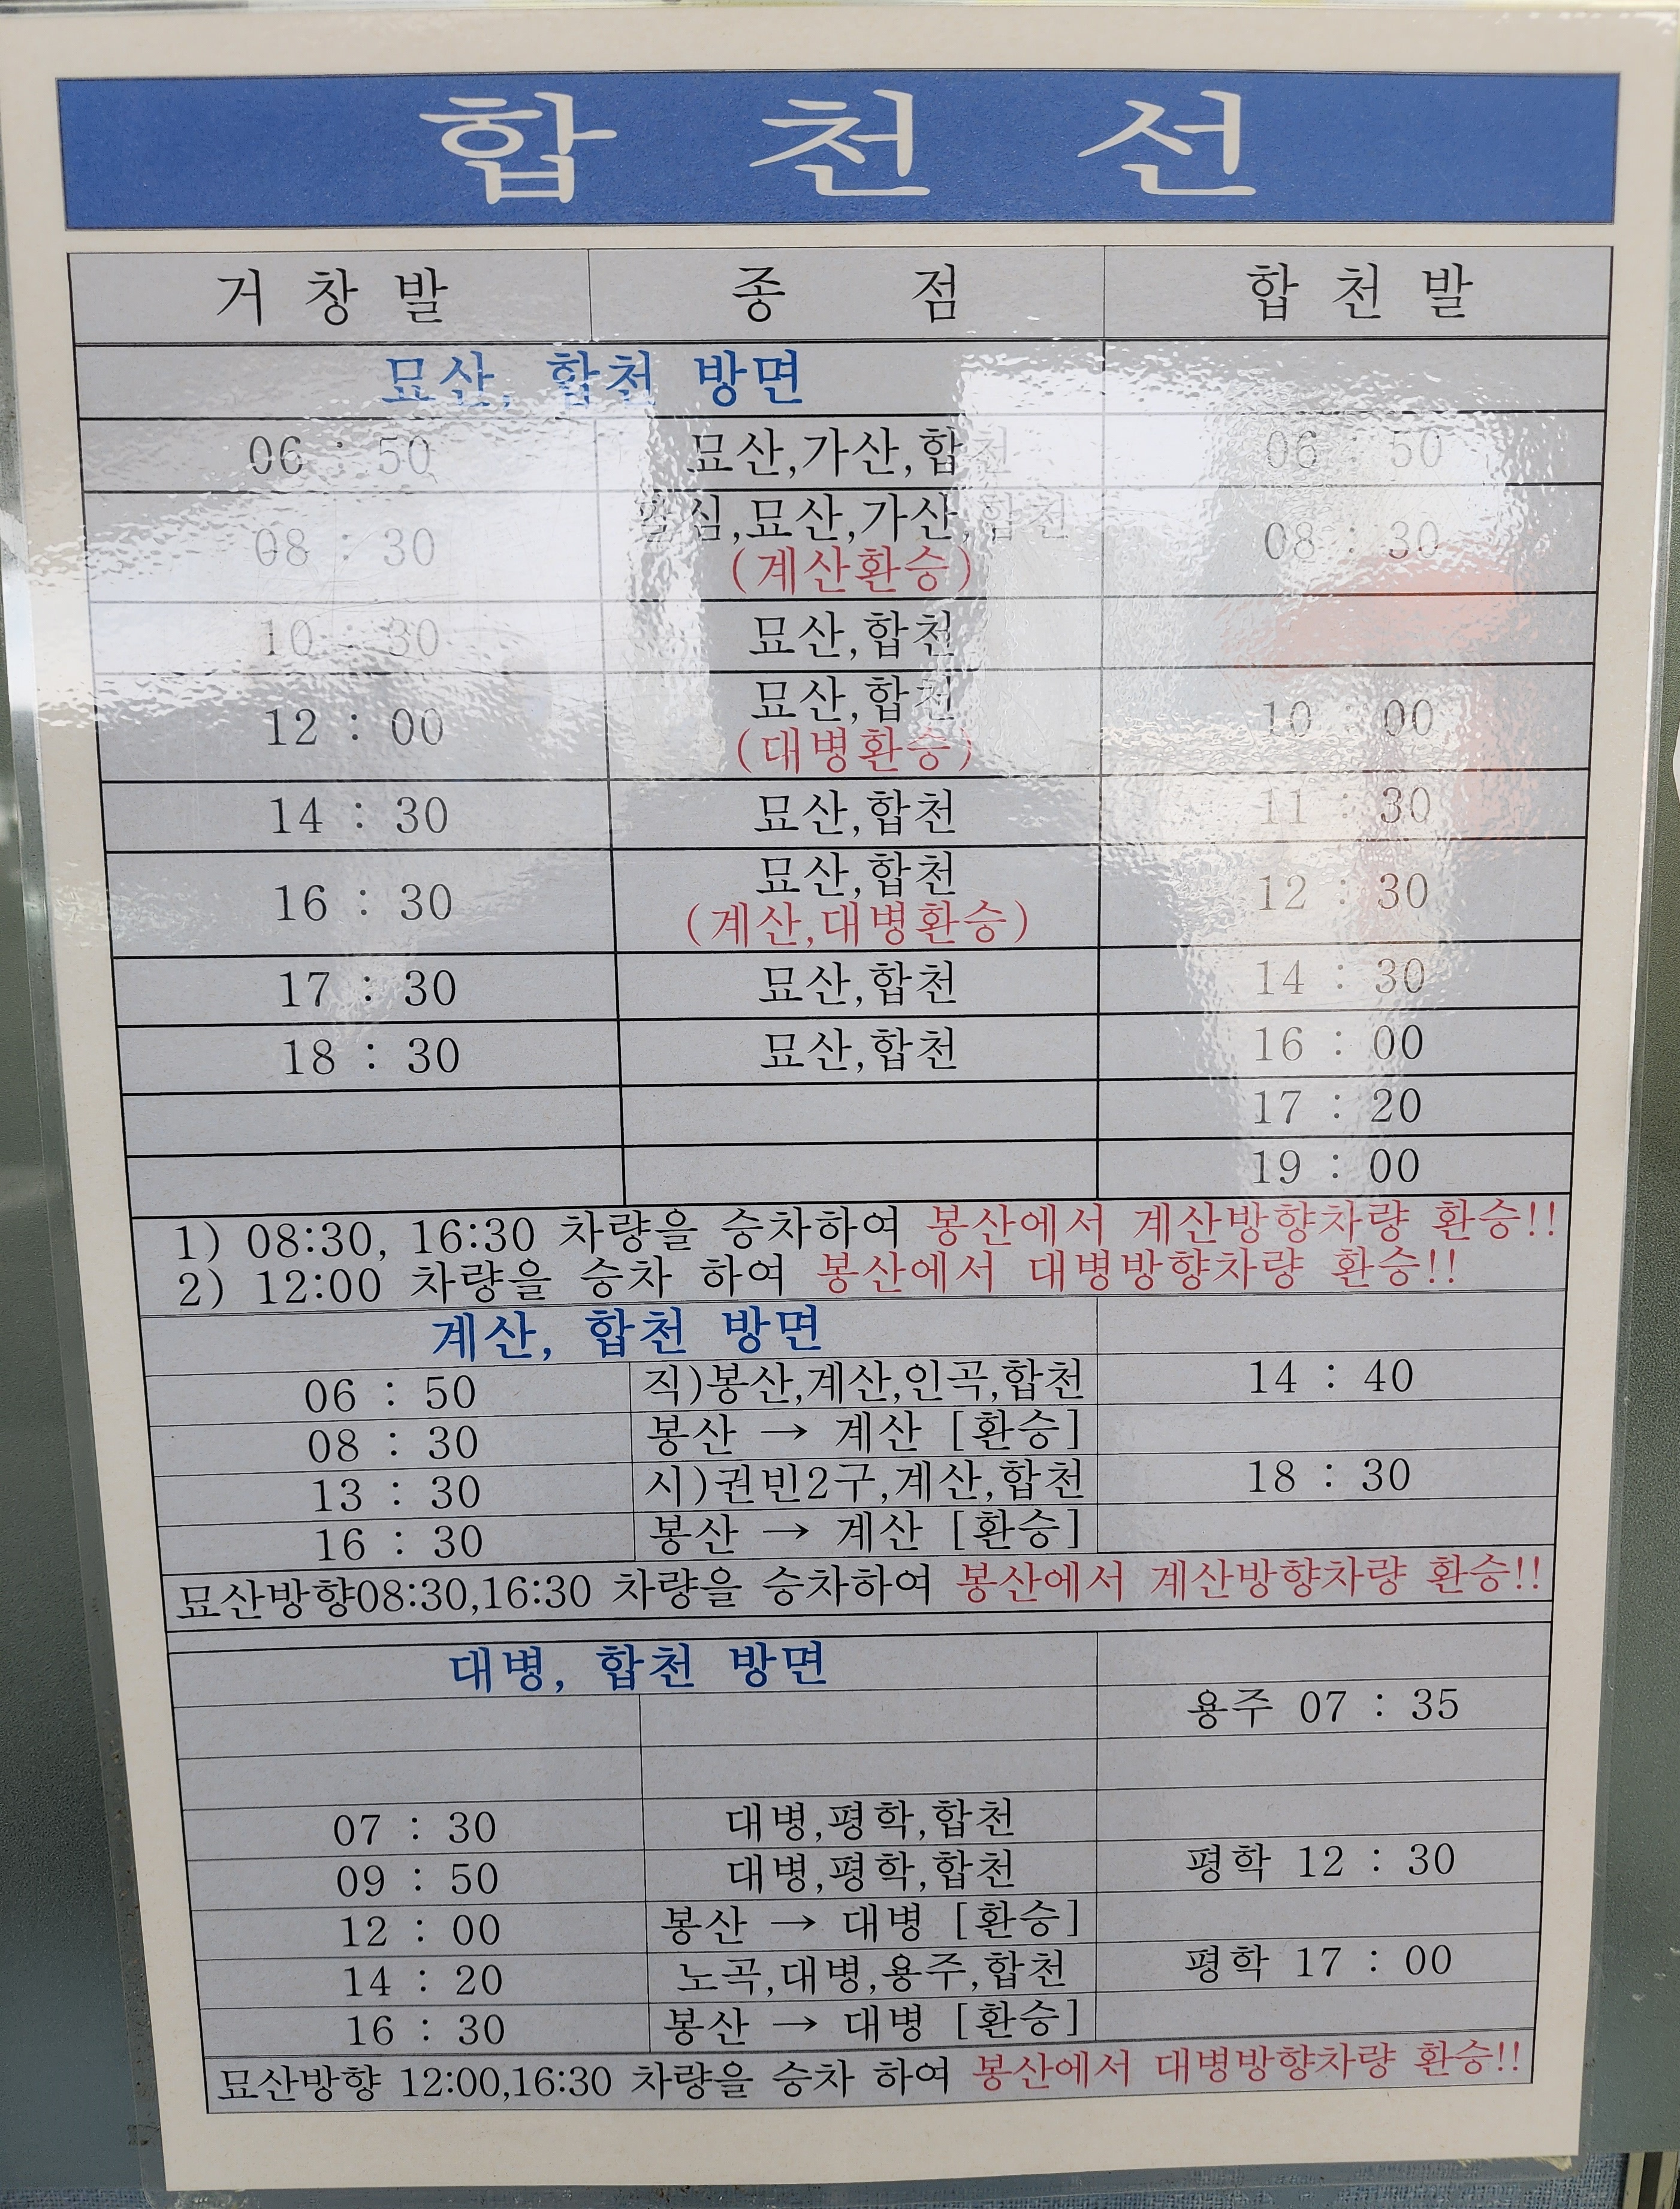 합 천 선
거 창 발 종 점 합 천 발
묘산, 합천 방면
06 : 50 묘산,가산,합천 06 : 50
08 : 30 묘산,가산,합천 08 : 30
(계산환승)
10 : 30 묘산,합천
12 : 00 묘산,합천 10 : 00
(대병환승)
14 : 30 묘산,합천 11 : 30
16 : 30 묘산,합천 12 : 30
(계산,대병환승)
17 : 30 묘산,합천 14 : 30
18 : 30 묘산,합천 16 : 00
17 : 20
19 : 00
1) 08:30, 16:30 차량을 승차하여 봉산에서 계산방향차량 환승!!
2) 12:00 차량을 승차 하여 봉산에서 대병방향차량 환승!!
계산, 합천 방면
06 : 50 직)봉산,계산,인곡,합천 14 : 40
08 : 30 봉산 → 계산 [환승]
13 : 30 시)권빈2구,계산,합천 18 : 30
16 : 30 봉산 → 계산 [환승]
묘산방향08:30,16:30 차량을 승차하여 봉산에서 계산방향차량 환승!!
대병, 합천 방면
용주 07 : 35
07 : 30 대병,평학,합천
09 : 50 대병,평학,합천 평학 12 : 30
12 : 00 봉산 → 대병 [환승]
14 : 20 노곡,대병,용주,합천 평학 17 : 00
16 : 30 봉산 → 대병 [환승]
묘산방향 12:00,16:30 차량을 승차 하여 봉산에서 대병방향차량 환승!!